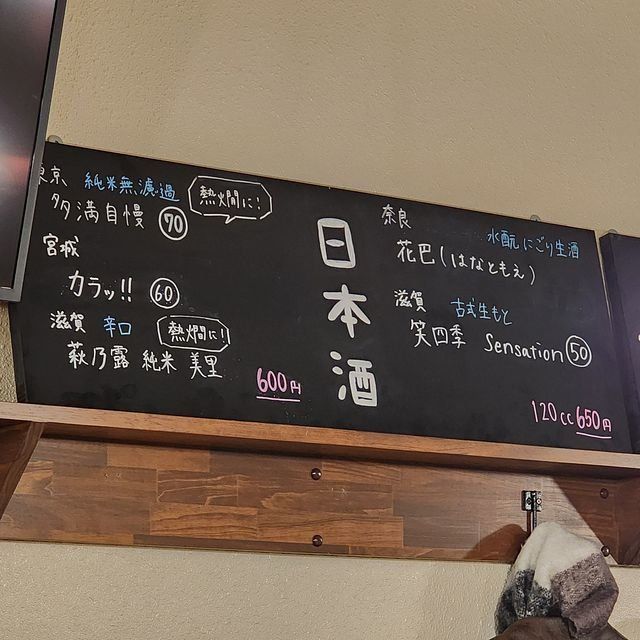 東京 純米無濾過
多満自慢 70 熱燗に!
宮城
カラッ!! 60
滋賀 辛口 熱燗に!
萩乃露 純米 美里
600円
日本酒
奈良 水酛にごり生酒
花巴(はなともえ)
滋賀 古式生もと
笑四季 Sensation 50
120cc 650円